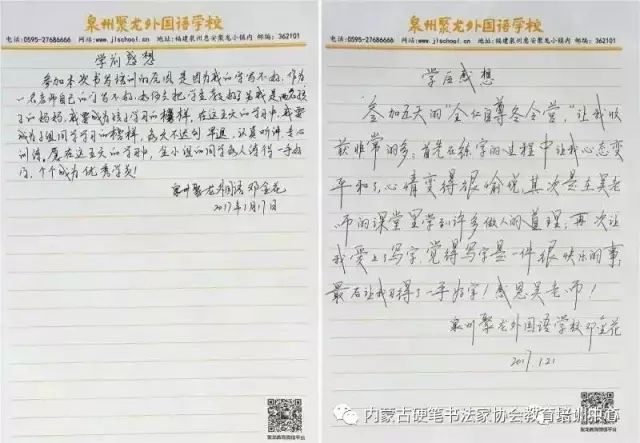 泉州聚龙外国语学校
电话:0595-27686666 网站:www.jlschool.com 地址:福建泉州惠安聚龙小镇内 邮编:362101
学前感想
参加本次书写培训的原因是因为我的字写不好,作为
一名老师自己的字写不好,如何去把学生教好?生我是两名孩
子的妈妈,我要成为孩子学习的榜样,在这五天的学习中,我要
成为小组同学学习的榜样,每天不迟到早退,认真听讲,专心
训练,愿在这五天的学习中,全小组的同学每人练得一手好
字,个个成为优秀学员!
泉州聚龙外国语 邓金花
2017年1月17日
聚龙教育微信平台
泉州聚龙外国语学校
电话:0595-27686666 网站:www.jlschool.com 地址:福建泉州惠安聚龙小镇内 邮编:362101
学后感想
参加五天的"全仁尊冬令营",让我收
获非常的多:首先在练字的过程中让我心态变
平和了,心情变得很愉悦,其次是在吴老
师的课堂里学到许多做人的道理;再次让
我爱上了写字,觉得写字是一件很快乐的事,
最后让我习得了一手好字!感恩吴老师!
泉州聚龙外国语学校邓金花
2017.1.21
聚龙教育微信平台
内蒙古硬笔书法家协会教育培训中心